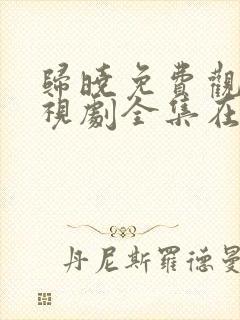 歸曉免費觀
視劇全集在
丹尼斯羅德曼